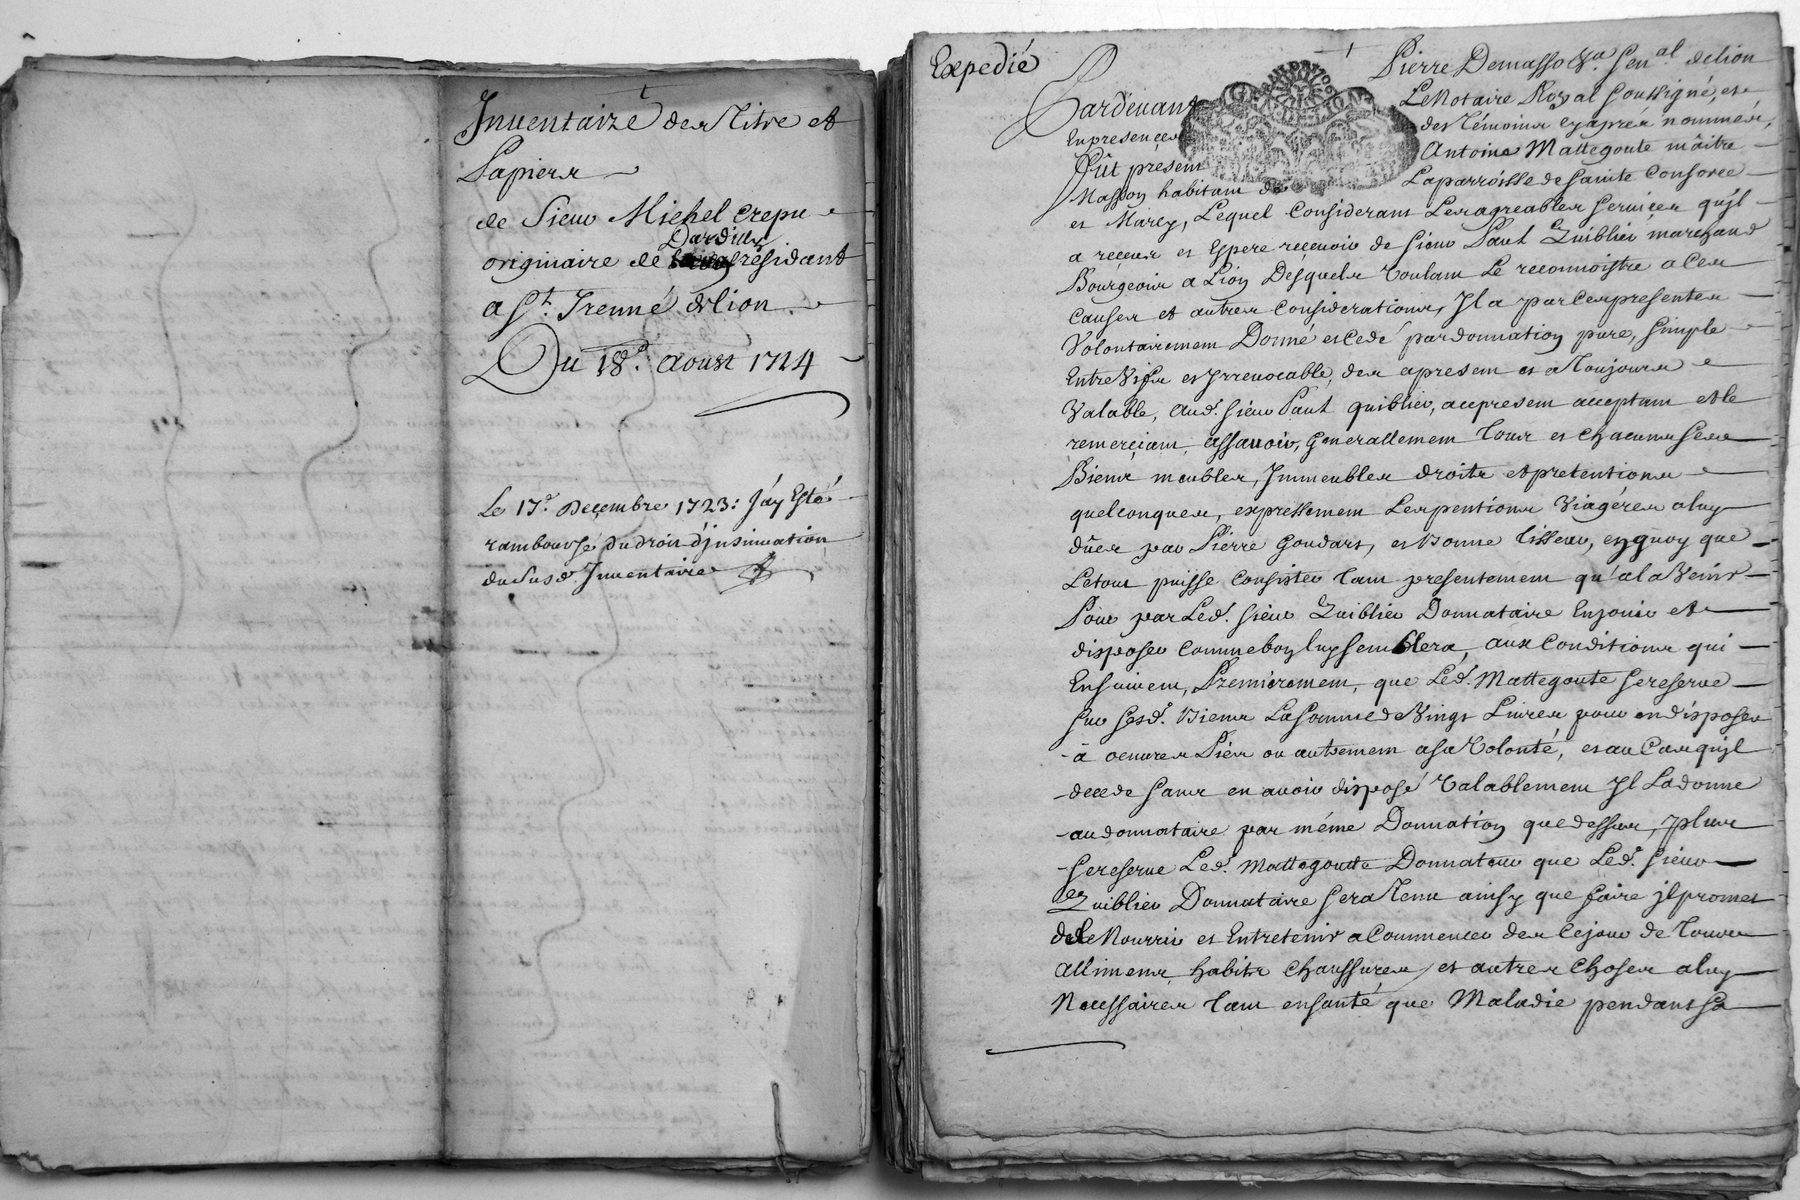 Inuentaire des Titre et
Papiers
de Sieur Michel Crepu
Dardilly
originaire de résidant
a St. Irenné de Lion.
Du 18e. Aoust 1724
Le 17e. Decembre 1723: J'ay Esté
rambourse du droit d'jnsinuation
du Susd. Inuentaire
Expedié
Pardeuant Pierre Demasso Sen.al de Lion
Le Notaire Royal Soussigné, et
En presence des Témoins cy apres nommés,
Fût présent Antoine Mattegoute mâitre
Masson habitant de La parroisse de Sainte Consorce
et Marcy, Lequel Considerant Les agreables Seruices qu'jl
a receus et Espere receuoir de Sieur Paul Quiblier marchand
Bourgeois a Lion Desquels Voulant Le reconnoistre a Ces
Causes et autres Considerations, Jl a par Ces presentes
Volontairement Donné et Cedé par donnation pure, Simple
Entre Vifs et Jrreuocable, des apresent et a Toujours
Valable, aud. Sieur Paul quiblier, acepresent acceptant et le
remerciant, assauoir, Generallement Tous et chacuns Ses
Biens meubles, Jmmeubles droits et pretentions
quelconques, expressement Les pentions Viagéres a luy
dûes par Pierre Goudart, et Bonne Tisseur, en quoy que
Le tout puisse Consister tant presentement qu'a la Venir
Pour par Led. Sieur Quiblier Donnataire En jouir et
disposer Comme bon luy Semblera, aux Conditions qui
Ensuiuent, Premierement, que Led. Mattegoute Se reserue
Sur Sesd. Biens La Somme de Vingt Liures pour en disposer
à oeuures Piës ou autrement a Sa Volonté, et au Cas qu'jl
decede Sans en auoir disposé Valablement Jl La donne
au donnataire par méme Donnation que dessus, Jplus
Se reserue Led. Mattegoutte Donnateur que Led. Sieur
Quiblier Donnataire Sera Tenu ainsy que faire jl promet
de Le Nourrir et Entretenir a Commencer des Cejour de Tous
alliments, habits, chaussures, et autres choses a luy
Necessaires tant en Santé que Maladie pendant Sa